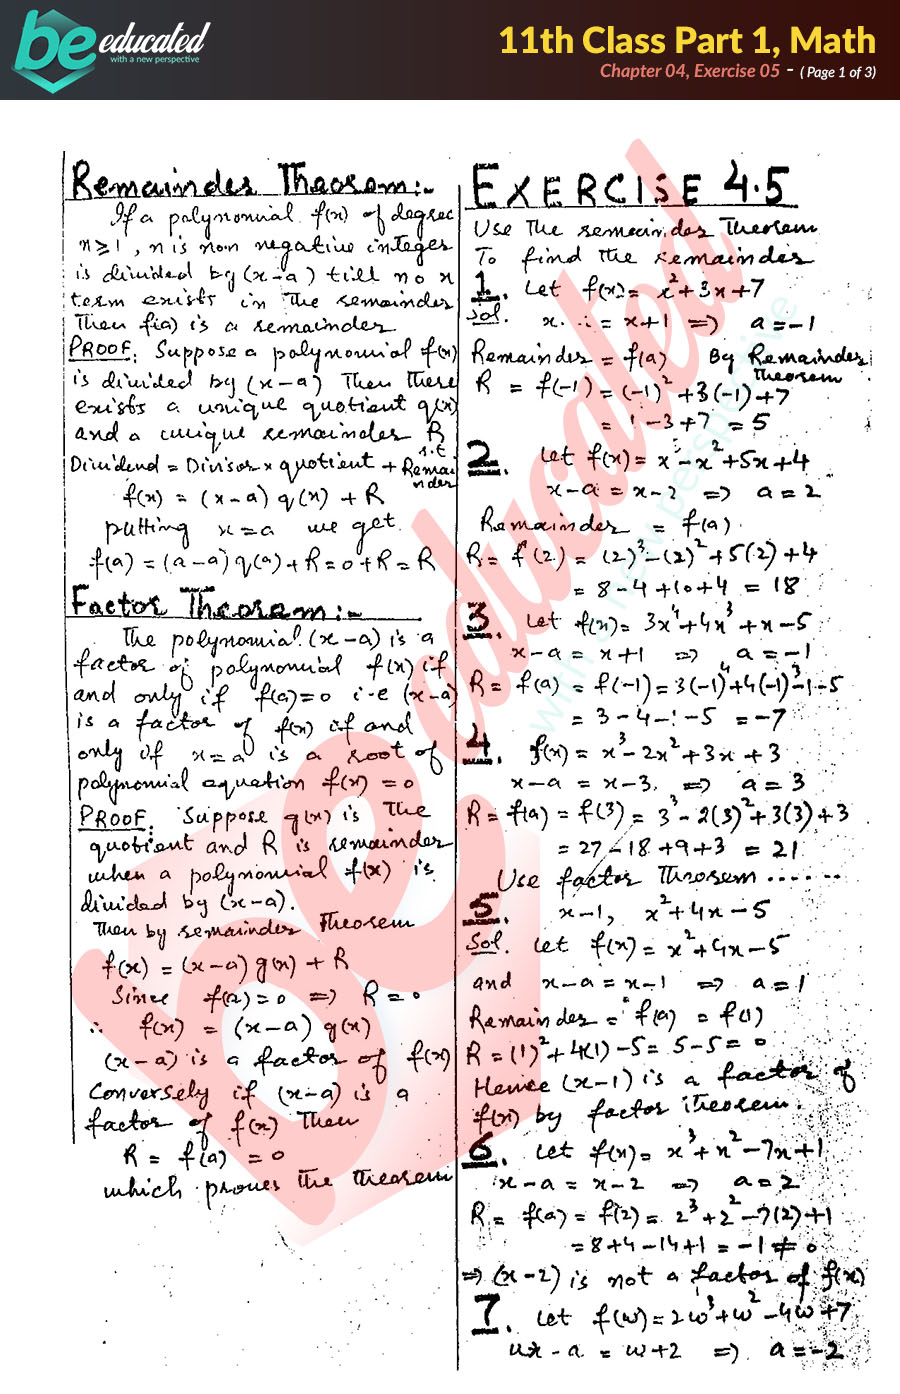 be educated
with a new perspective
11th Class Part 1, Math
Chapter 04, Exercise 05 - ( Page 1 of 3)
Remainder Theorem:-
If a polynomial f(x) of degree
n≥1, n is non negative integer
is divided by (x-a) till no x
term exists in the remainder
Then f(a) is a remainder
PROOF: Suppose a polynomial f(x)
is divided by (x-a) Then there
exists a unique quotient q(x)
and a unique remainder R
s.t
Dividend = Divisor × quotient + Remainder
f(x) = (x-a) q(x) + R
putting x=a we get
f(a) = (a-a) q(a) + R = 0+R = R
Factor Theoram:-
The polynomial (x-a) is a
factor of polynomial f(x) if
and only if f(a)=0 i-e (x-a)
is a factor of f(x) if and
only if x=a is a root of
polynomial equation f(x) = 0
PROOF: Suppose q(x) is The
quotient and R is remainder
when a polynomial f(x) is
divided by (x-a).
Then by remainder Theorem
f(x) = (x-a) q(x) + R
Since f(a)=0 => R=0
∴ f(x) = (x-a) q(x)
(x-a) is a factor of f(x)
Conversely if (x-a) is a
factor of f(x) Then
R = f(a) = 0
which proves the theorem
EXERCISE 4.5
Use The remainder Theorem
To find the remainder
1. Let f(x) = x²+3x+7
Sol. x = x+1 => a=-1
Remainder = f(a) By Remainder Theorem
R = f(-1) = (-1)² +3(-1)+7
= 1-3+7 = 5
2. Let f(x) = x³-x²+5x+4
x-a = x-2 => a=2
Remainder = f(a)
R = f(2) = (2)³-(2)²+5(2)+4
= 8-4+10+4 = 18
3. Let f(x) = 3x⁴+4x³+x-5
x-a = x+1 => a=-1
R = f(a) = f(-1) = 3(-1)⁴+4(-1)³-1-5
= 3-4-1-5 = -7
4. f(x) = x³-2x²+3x+3
x-a = x-3 => a=3
R = f(a) = f(3) = 3³-2(3)²+3(3)+3
= 27-18+9+3 = 21
Use factor Theorem ......
5. x-1, x²+4x-5
Sol. Let f(x) = x²+4x-5
and x-a = x-1 => a=1
Remainder = f(a) = f(1)
R = (1)²+4(1)-5 = 5-5 = 0
Hence (x-1) is a factor of
f(x) by factor Theorem.
6. Let f(x) = x³+x²-7x+1
x-a = x-2 => a=2
R = f(a) = f(2) = 2³+2²-7(2)+1
= 8+4-14+1 = -1 ≠ 0
=> (x-2) is not a factor of f(x)
7. Let f(w) = 2w³+w²-4w+7
x-a = w+2 => a=-2
be educated
with a new perspective